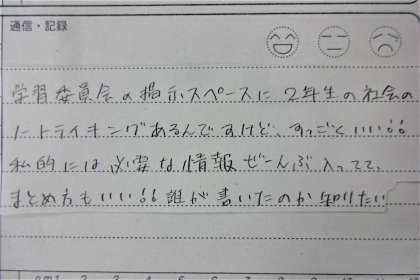 通信・記録
学習委員会の掲示スペースに2年生の社会の
ノートライキングあるんですけど、すっごくいい!!
私的には必要な情報ぜーんぶ入ってて、
まとめ方もいい!!誰が書いたのか知りたい